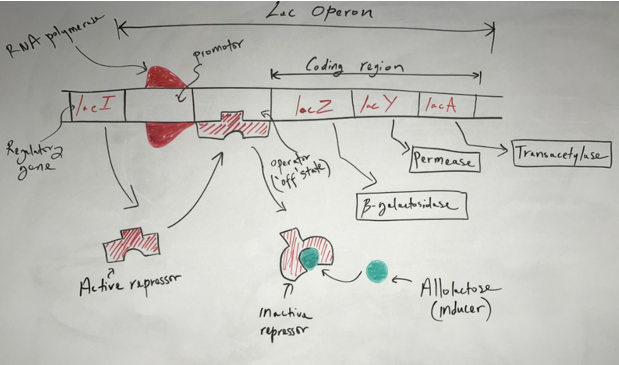 Lac Operon
RNA polymerase
promotor
Coding region
lacI
lacZ
lacY
lacA
Regulatory
gene
operator
('off' state)
Permease
Transacetylase
β-galactosidase
Active repressor
Inactive
repressor
Allolactose
(inducer)